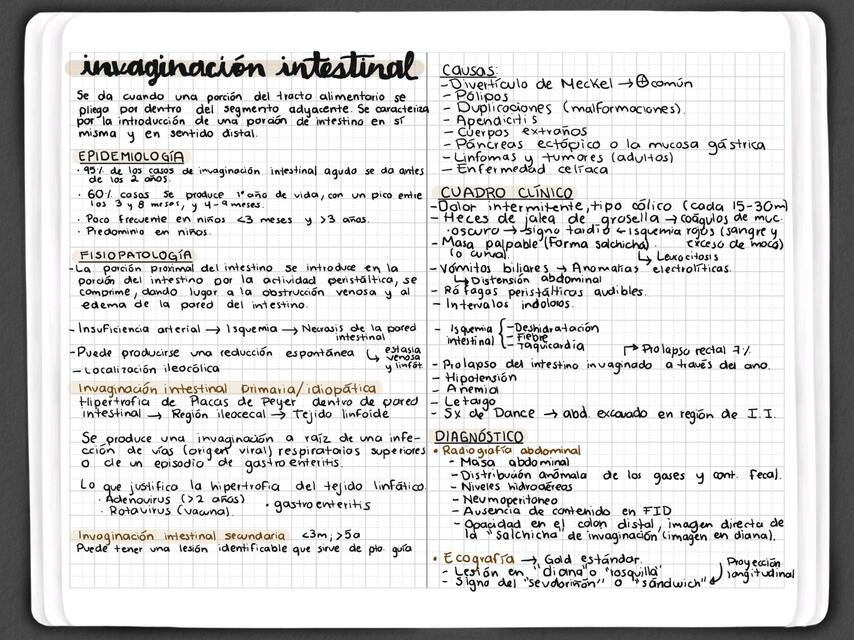 invaginación intestinal
Se da cuando una porción del tracto alimentario se
pliega por dentro del segmento adyacente. Se caracteriza
por la introducción de una porción de intestino en sí
misma y en sentido distal.
EPIDEMIOLOGÍA
· 95% de los casos de invaginación intestinal agudo se da antes
de los 2 años.
· 60% casos se produce 1° año de vida, con un pico entre
los 3 y 8 meses, y 4-9 meses.
· Poco frecuente en niños <3 meses y >3 años.
· Predominio en niños.
FISIOPATOLOGÍA
- La porción proximal del intestino se introduce en la
porción del intestino por la actividad peristáltica, se
comprime, dando lugar a la obstrucción venosa y al
edema de la pared del intestino.
- Insuficiencia arterial → Isquemia → Necrosis de la pared
intestinal
- Puede producirse una reducción espontánea ↳ estasia
venosa
y linfát.
- Localización ileocólica
Invaginación intestinal Primaria/idiopática
Hipertrofia de Placas de Peyer dentro de pared
intestinal → Región ileocecal → Tejido linfoide
Se produce una invaginación a raíz de una infe-
cción de vías (origen viral) respiratorias superiores
o de un episodio de gastroenteritis.
Lo que justifica la hipertrofia del tejido linfático.
· Adenovirus (>2 años)
· Rotavirus (vacuna).
· gastroenteritis
Invaginación intestinal secundaria <3m; >5a
Puede tener una lesión identificable que sirve de pto. guía
Causas:
- Divertículo de Meckel → ⊕ común
- Pólipos
- Duplicaciones (malformaciones).
- Apendicitis
- Cuerpos extraños
- Páncreas ectópico o la mucosa gástrica
- Linfomas y tumores (adultos)
- Enfermedad celíaca
CUADRO CLÍNICO
- Dolor intermitente, tipo cólico (cada 15-30m)
- Heces de jalea de grosella → coágulos de muc.
· oscuro → signo tardío ← Isquemia rojos (sangre y
exceso de moco)
- Masa palpable (Forma salchicha)
(o curva).
↳ Leucocitosis
- Vómitos biliares → Anomalías electrolíticas.
↳ Distensión abdominal
- Ráfagas peristálticas audibles.
- Intervalos indoloros.
- Isquemia intestinal { - Deshidratación
- Fiebre
- Taquicardia
↱ Prolapso rectal 7%
- Prolapso del intestino invaginado a través del ano.
- Hipotensión
- Anemia
- Letargo
- Sx de Dance → abd. excavado en región de I.I.
DIAGNÓSTICO
• Radiografía abdominal
- Masa abdominal
- Distribución anómala de los gases y cont. fecal.
- Niveles hidroaéreas
- Neumoperitoneo
- Ausencia de contenido en FID
- Opacidad en el colon distal, imagen directa de
la "salchicha" de invaginación (imagen en diana).
• Ecografía → Gold estándar.
- Lesión en "diana" o "rosquilla"
- Signo del "seudoriñón" o "sándwich"
Proyección
longitudinal